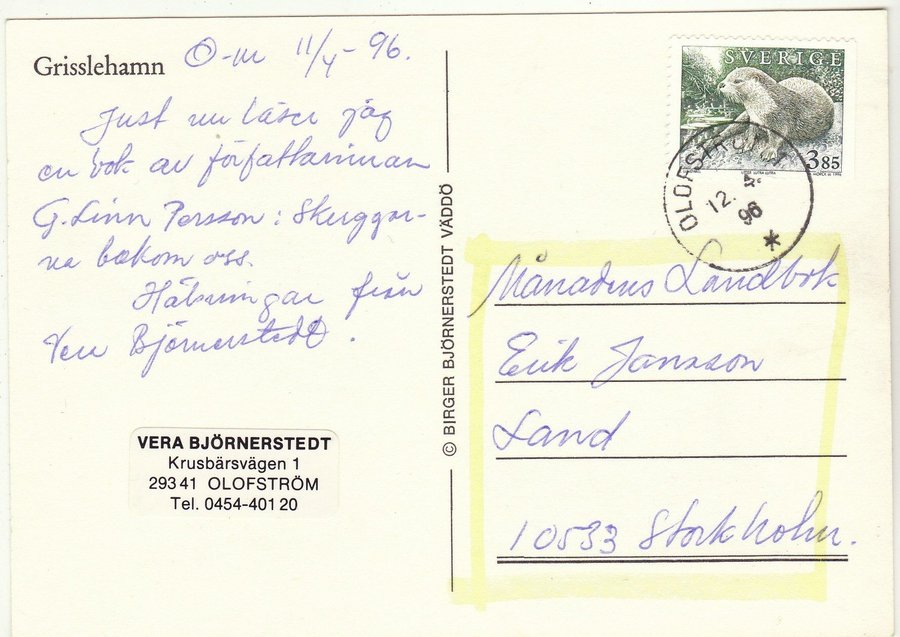 Grisslehamn
O-m 11/4-96.
Just nu läser jag
en bok av författarinnan
G. Linn Persson: Skuggor-
na bakom oss.
Hälsningar från
Vera Björnerstedt.
VERA BJÖRNERSTEDT
Krusbärsvägen 1
293 41 OLOFSTRÖM
Tel. 0454-401 20
© BIRGER BJÖRNERSTEDT VÄDDÖ
SVERIGE
3.85
OLOFSTRÖM
12. 4.
96
Månadens Landbok
Erik Jansson
Land
10533 Stockholm.